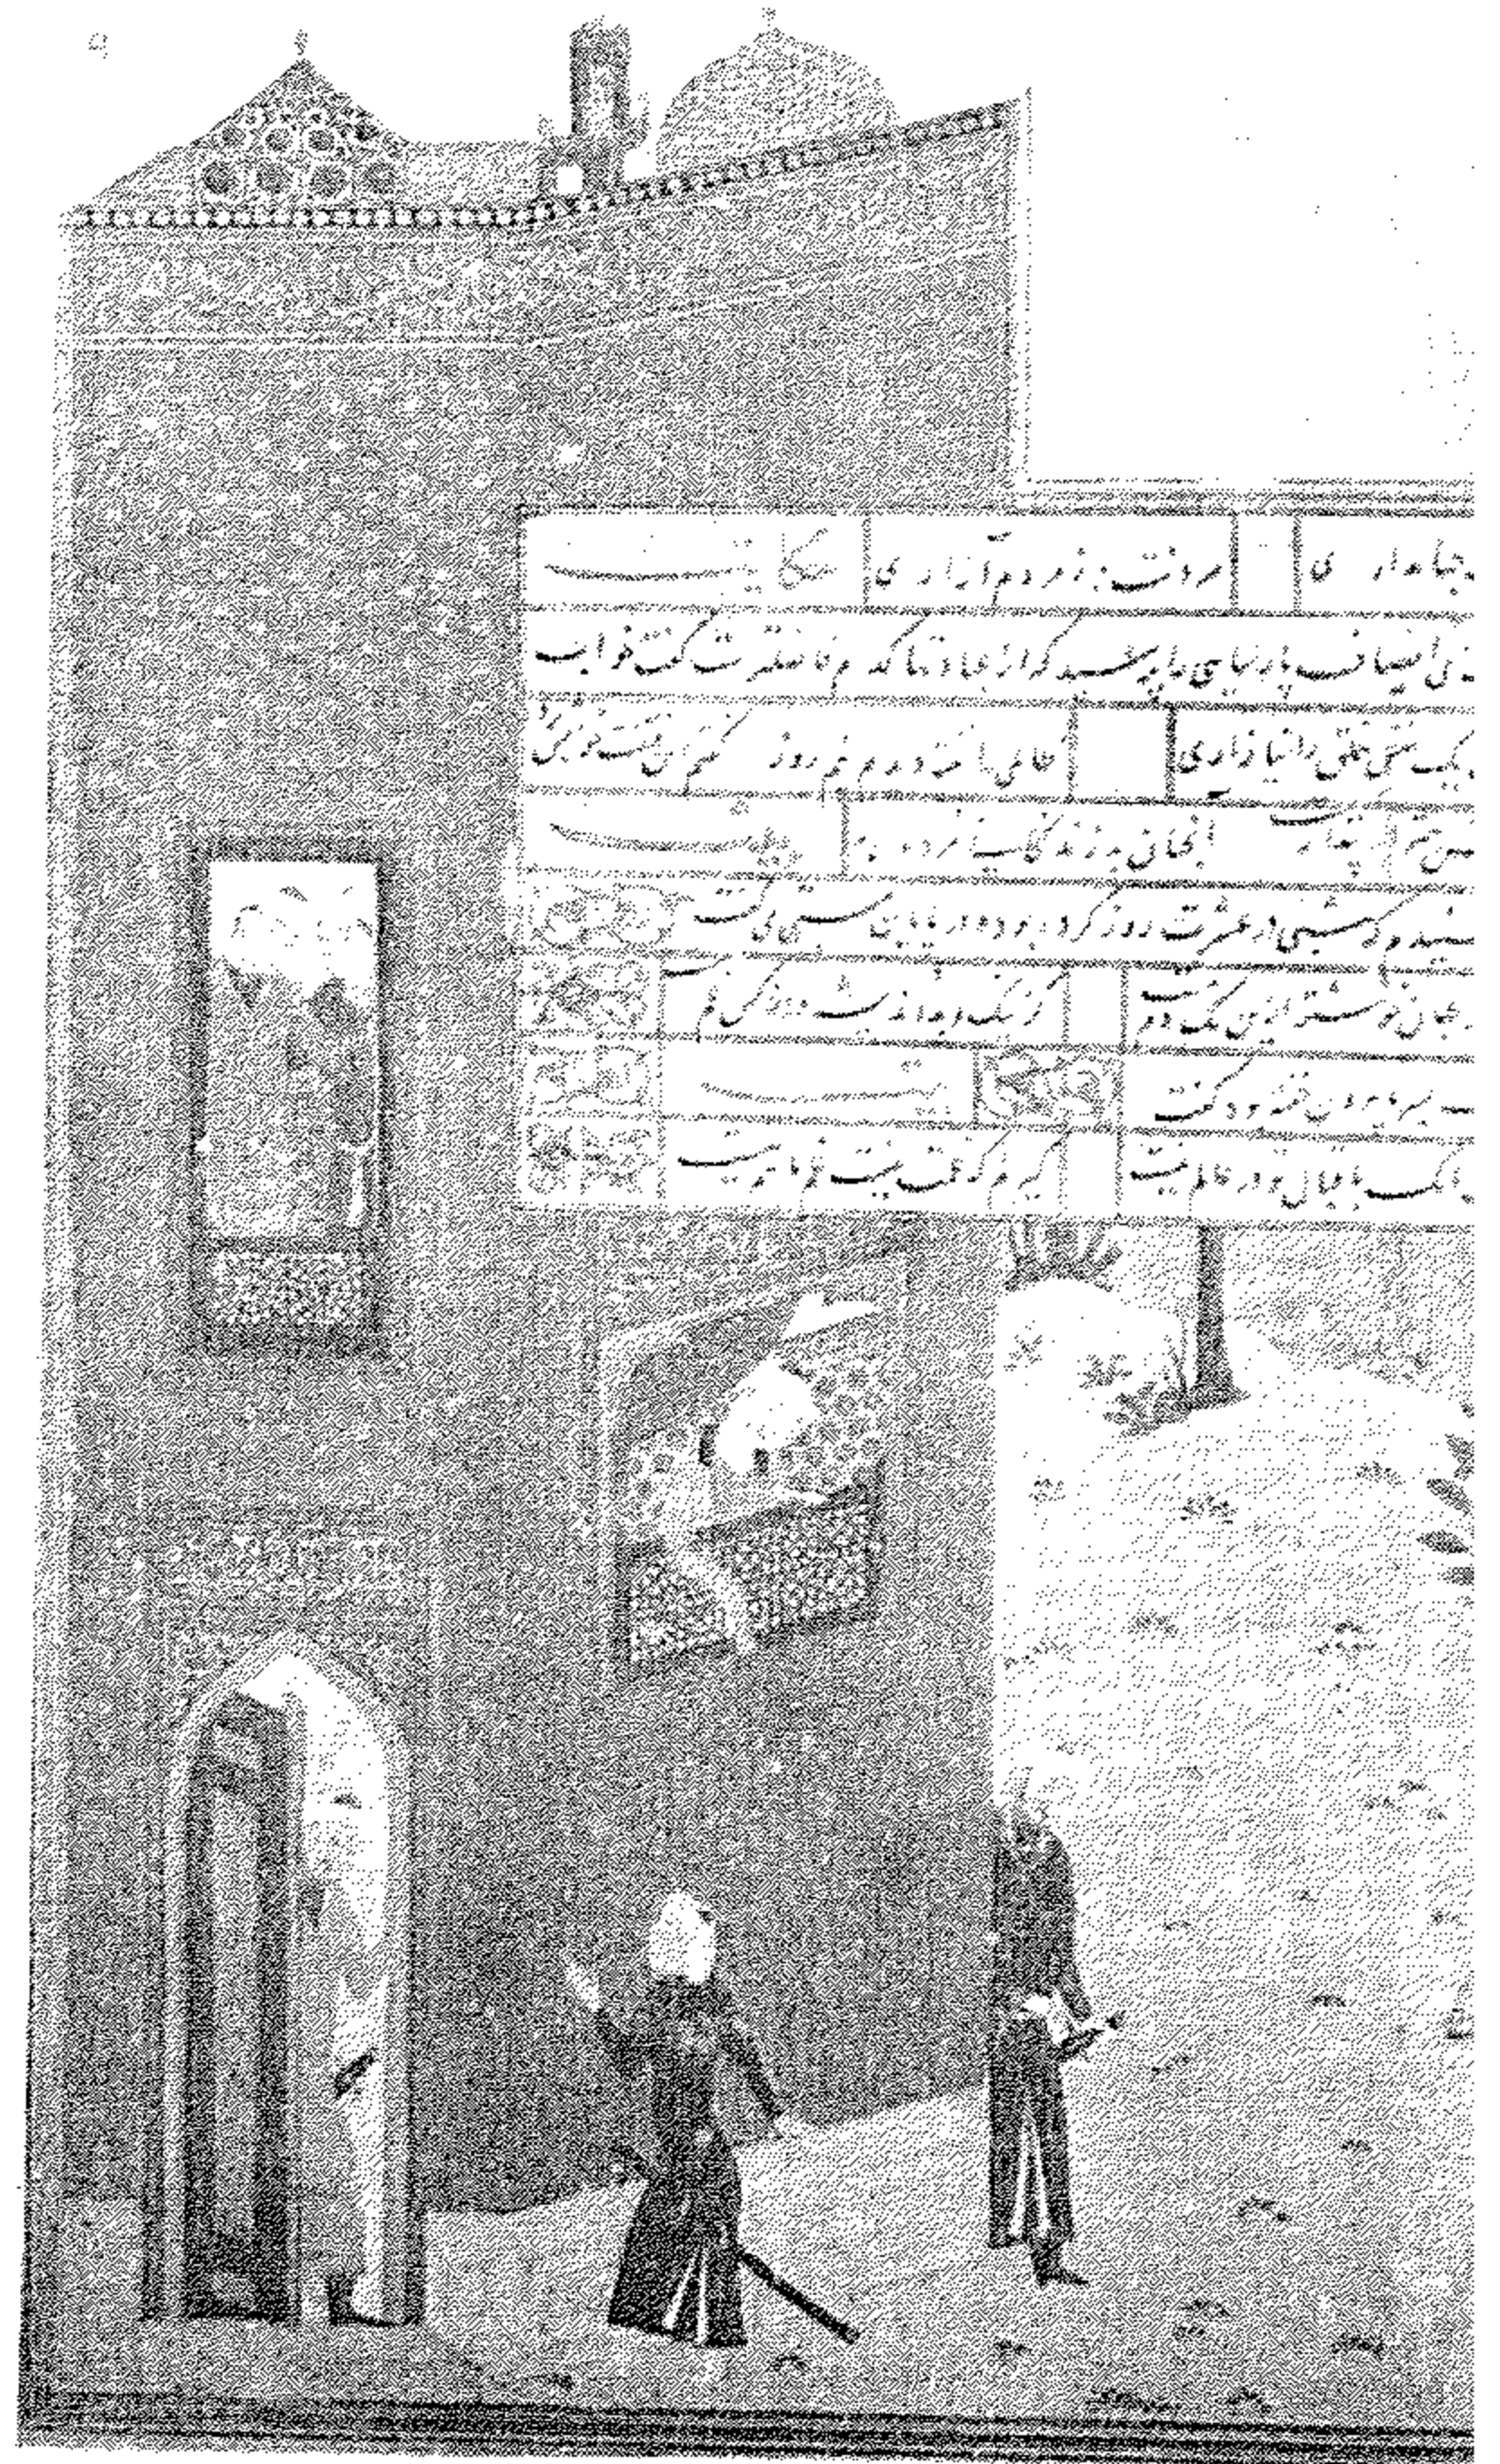 جهانداری مردنت به ز مردم آزاری حکایت
بی انصاف پارسایی را پرسید که از عبادتها کدام فاضلترست گفت خواب
یک نفس خلق را نیازاری ظالمی را خفته دیدم نیم روز گفتم این فتنه است خوابش برده
آنچنان بد زندگانی مرده به
شنیدم که شبی در عشرت روز کرده بود و در پایان مستی می گفت
بجهان خوشتر ازین یک دم نیست کز نیک و بد اندیشه و از کس غم
بسرما برون خفته بود گفت
آنکه باقبال تو در عالم نیست گیرم که غمت نیست غم ما هم نیست